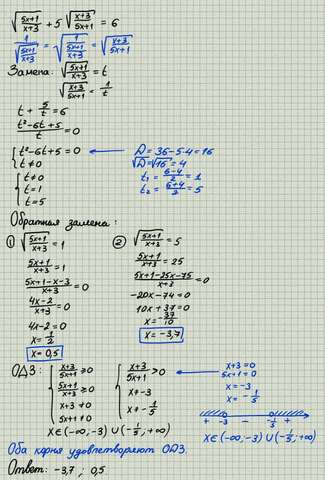 √((5x+1)/(x+3)) + 5 √((x+3)/(5x+1)) = 6
1/√((5x+1)/(x+3)) = √(1/((5x+1)/(x+3))) = √((x+3)/(5x+1))
Замена: √((5x+1)/(x+3)) = t
√((x+3)/(5x+1)) = 1/t
t + 5/t = 6
(t²-6t+5)/t = 0
{ t²-6t+5 = 0
t ≠ 0
{ t ≠ 0
t = 1
t = 5
D = 36-5·4 = 16
√D = √16 = 4
t₁ = (6-4)/2 = 1
t₂ = (6+4)/2 = 5
Обратная замена:
① √((5x+1)/(x+3)) = 1
(5x+1)/(x+3) = 1
(5x+1-x-3)/(x+3) = 0
(4x-2)/(x+3) = 0
4x-2 = 0
x = 1/2
x = 0,5
② √((5x+1)/(x+3)) = 5
(5x+1)/(x+3) = 25
(5x+1-25x-75)/(x+3) = 0
-20x-74 = 0
10x+37 = 0
x = -37/10
x = -3,7
ОДЗ: { (x+3)/(5x+1) ≥ 0
(5x+1)/(x+3) ≥ 0
x+3 ≠ 0
5x+1 ≠ 0
{ (x+3)/(5x+1) > 0
x ≠ -3
x ≠ -1/5
x+3 = 0
5x+1 = 0
x = -3
x = -1/5
+ -3 - -1/5 +
x∈(-∞; -3) ∪ (-1/5; +∞)
x∈(-∞; -3) ∪ (-1/5; +∞)
Оба корня удовлетворяют ОДЗ.
Ответ: -3,7 ; 0,5